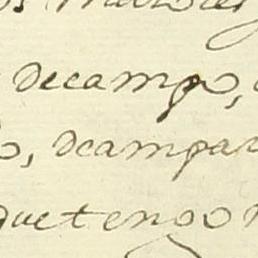 decampo,
o, dcampa
que tengo